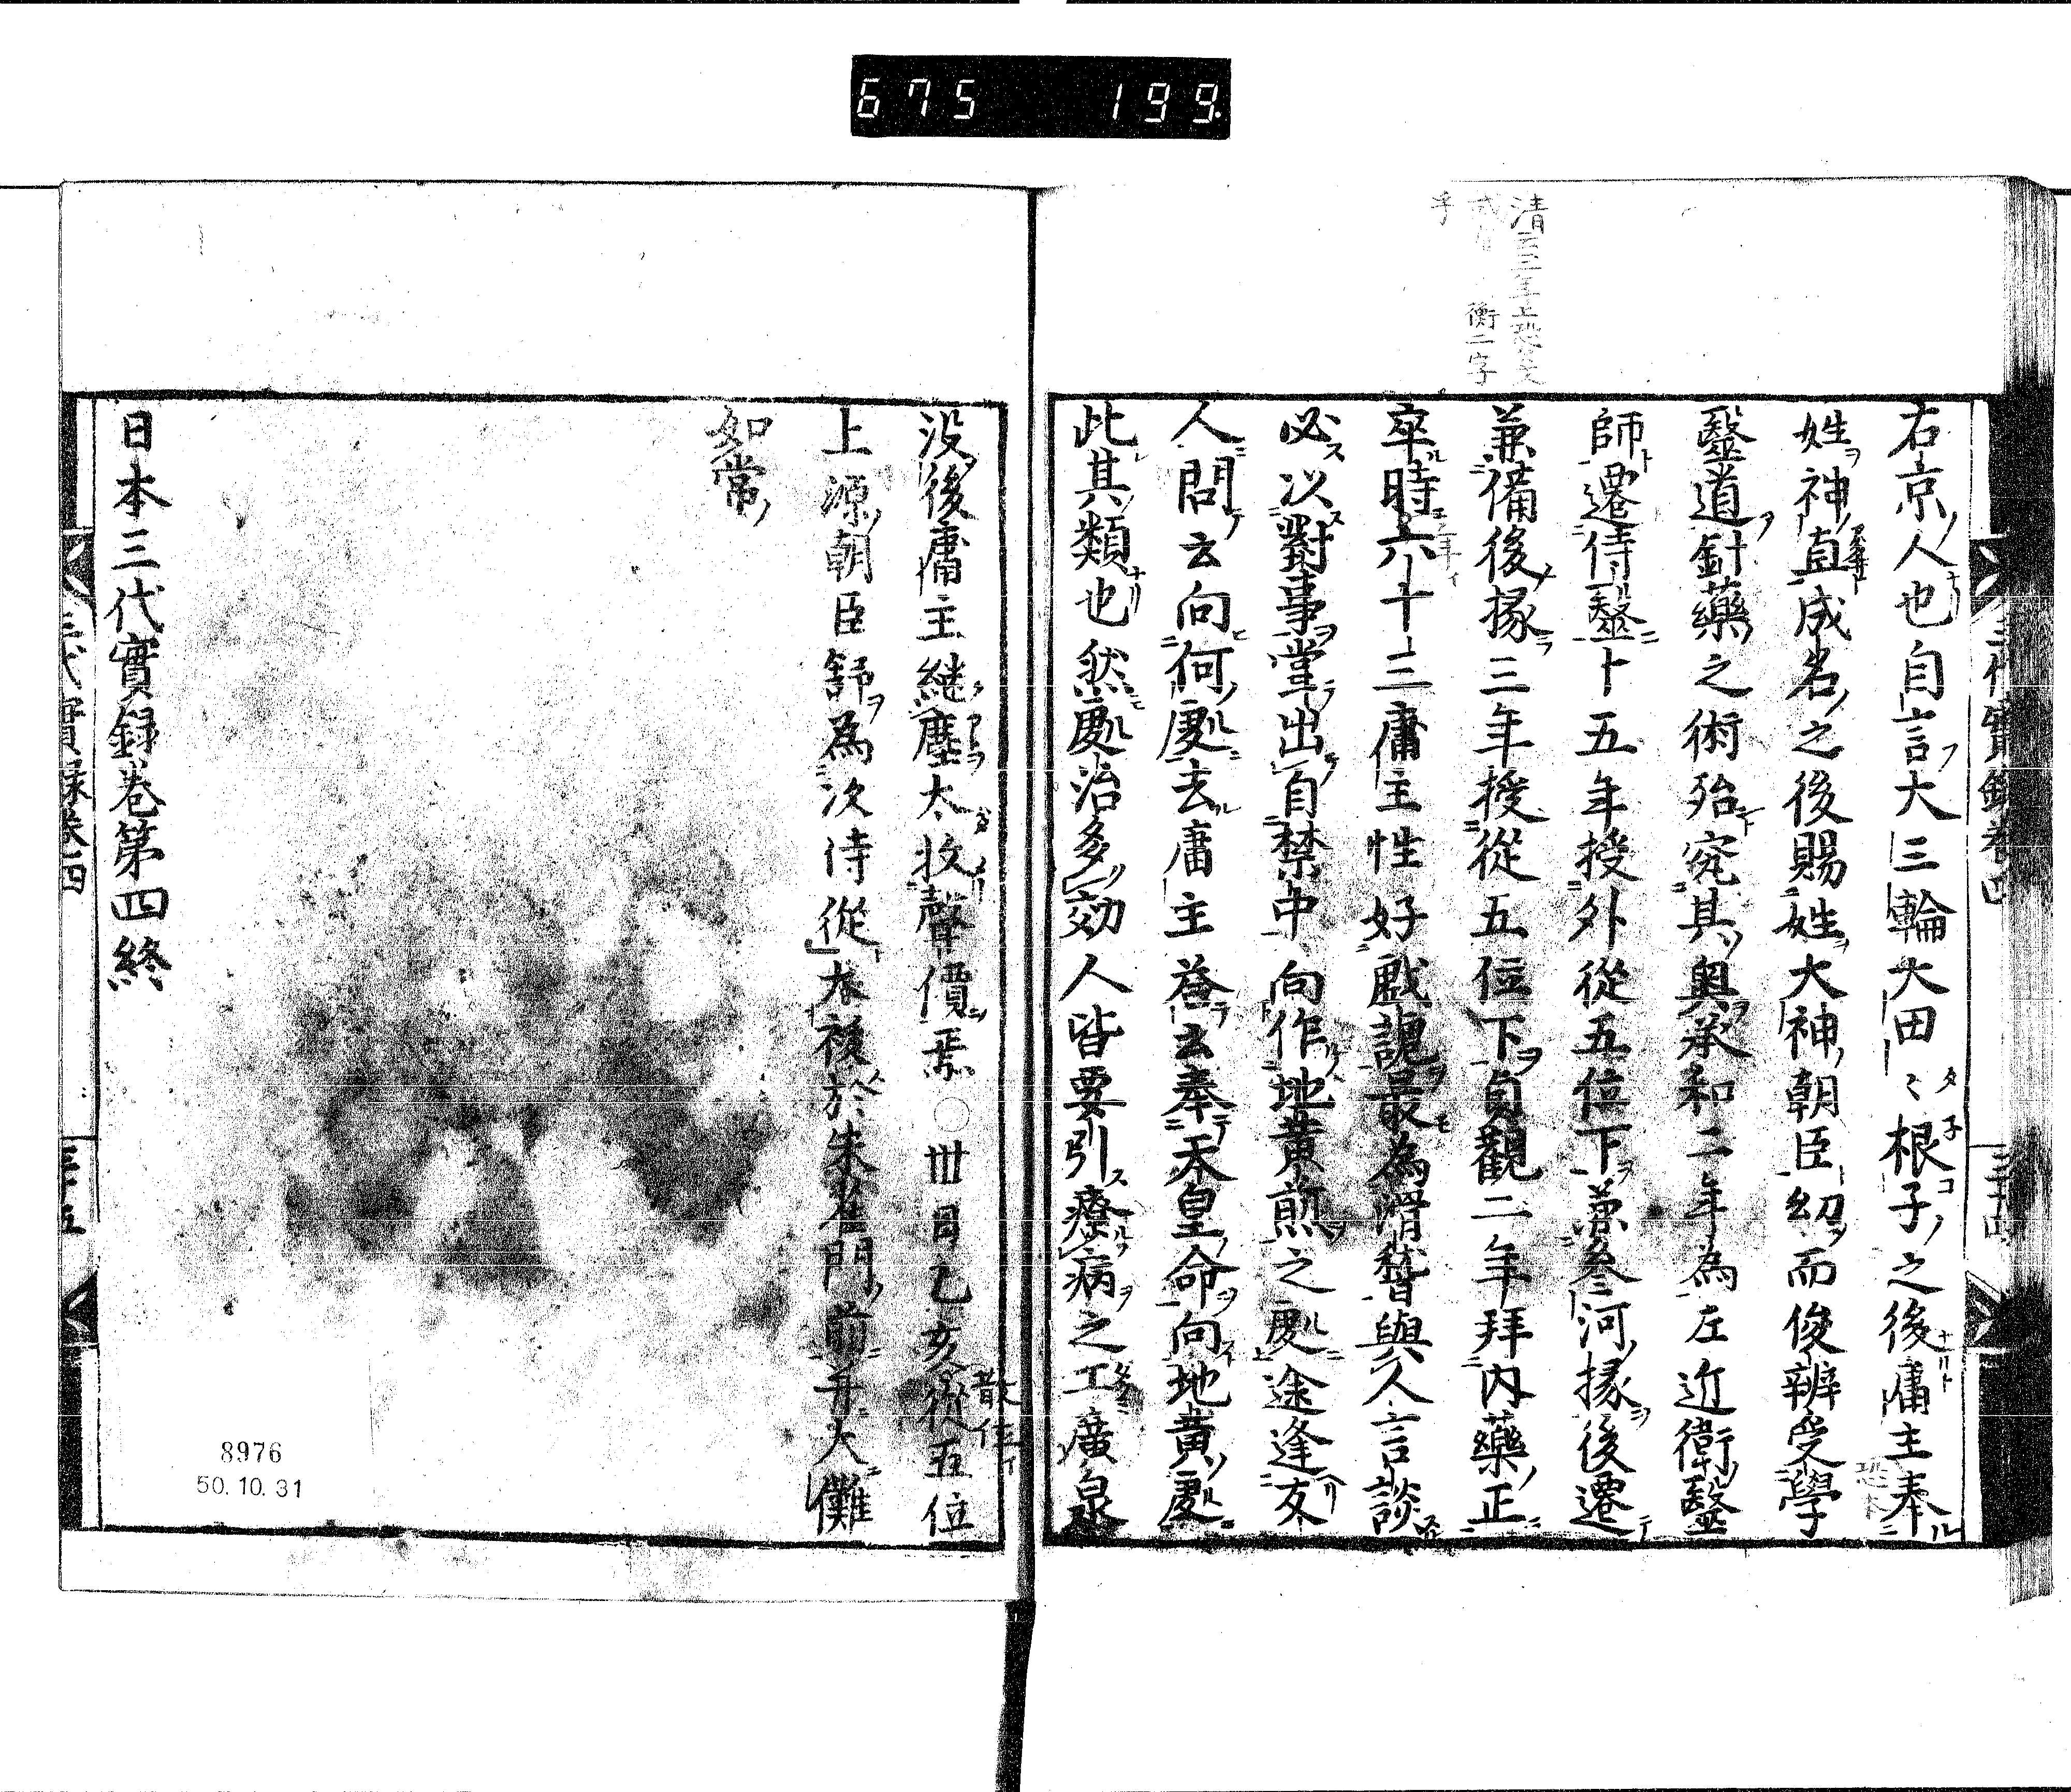 675 199
右京人也自言大三輪大田々根子之後庸主奉
姓神直成名之後賜姓大神朝臣幼而俊辨受學
醫道針藥之術殆究其奥承和二年為左近衛醫
師遷侍醫十五年授外從五位下兼參河掾後遷
兼備後掾三年授從五位下貞觀二年拜内藥正
卒時六十三庸主性好戲謔最為滑稽與人言談
必以對事甞出自禁中向作地黄煎之處途逢友
人問云向何處去庸主荅云奉天皇命向地黄處
此其類也然處治多効人皆要引療病之工廣泉
没後庸主継塵太收聲價焉○卅日乙亥從五位
散位イ
上源朝臣舒為次侍從大祓於朱雀門前并大儺
如常
日本三代實録巻第四終
三代實録巻四
8976
50.10.31